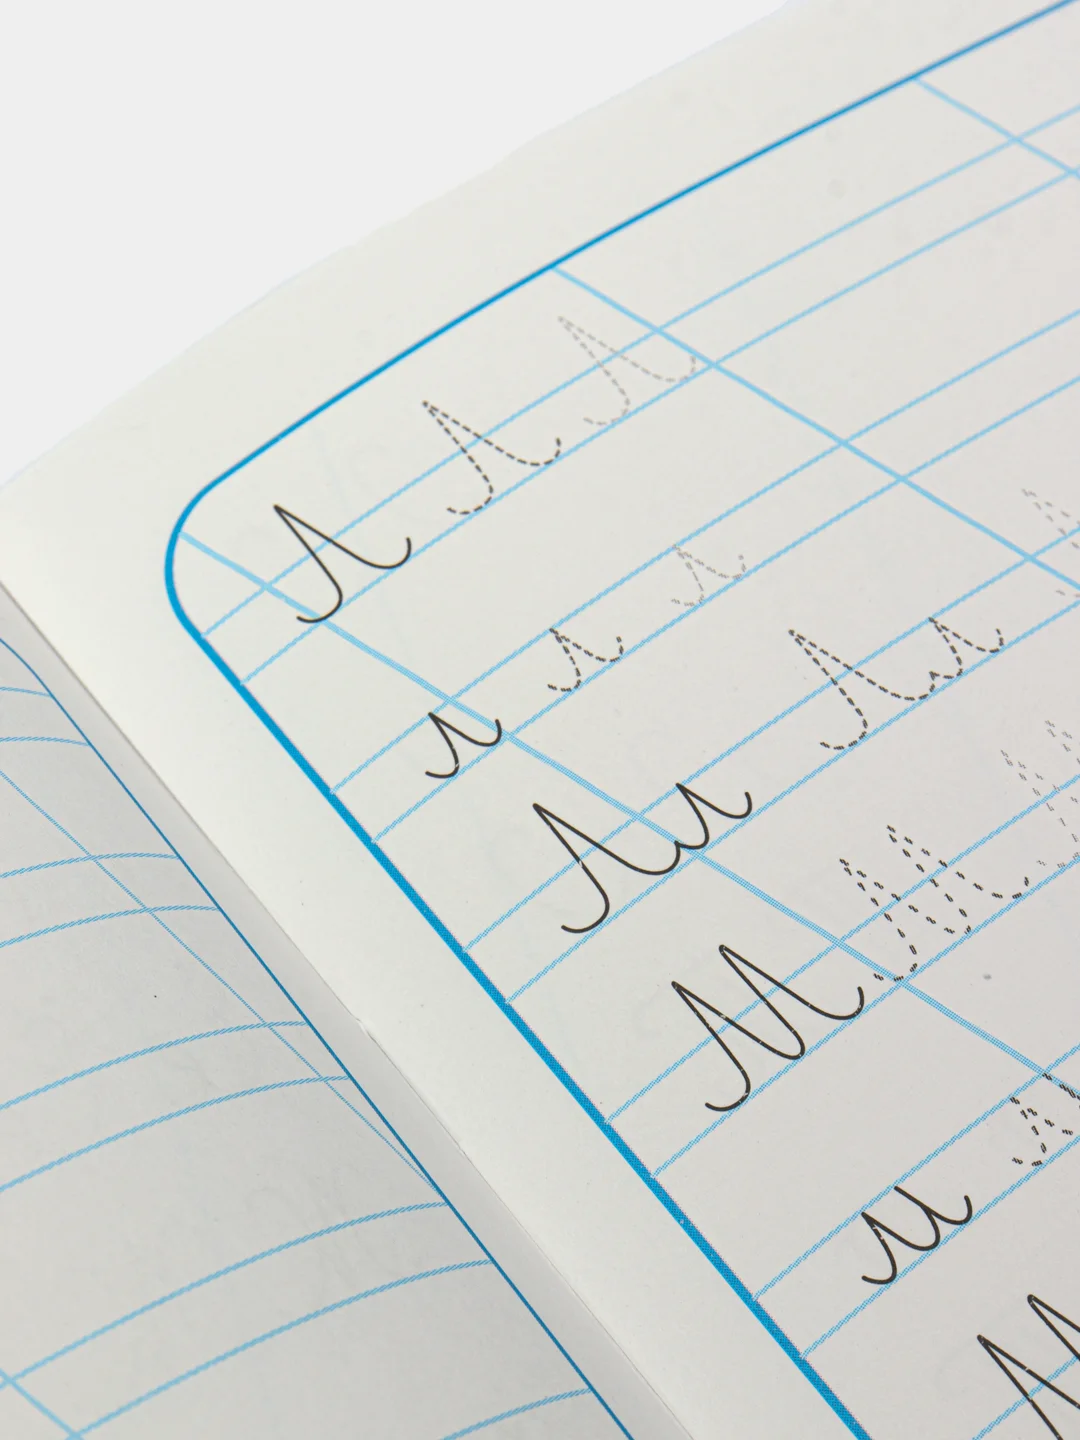 Л Л Л
л л л
Лл Лл Л
М М М
м м
М